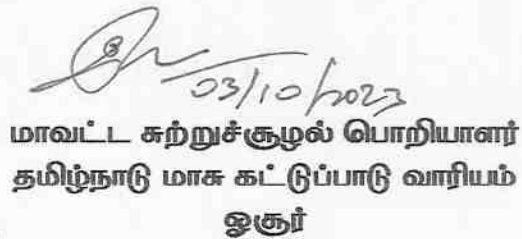 03/10/2023
மாவட்ட சுற்றுச்சூழல் பொறியாளர்
தமிழ்நாடு மாசு கட்டுப்பாடு வாரியம்
ஓசூர்